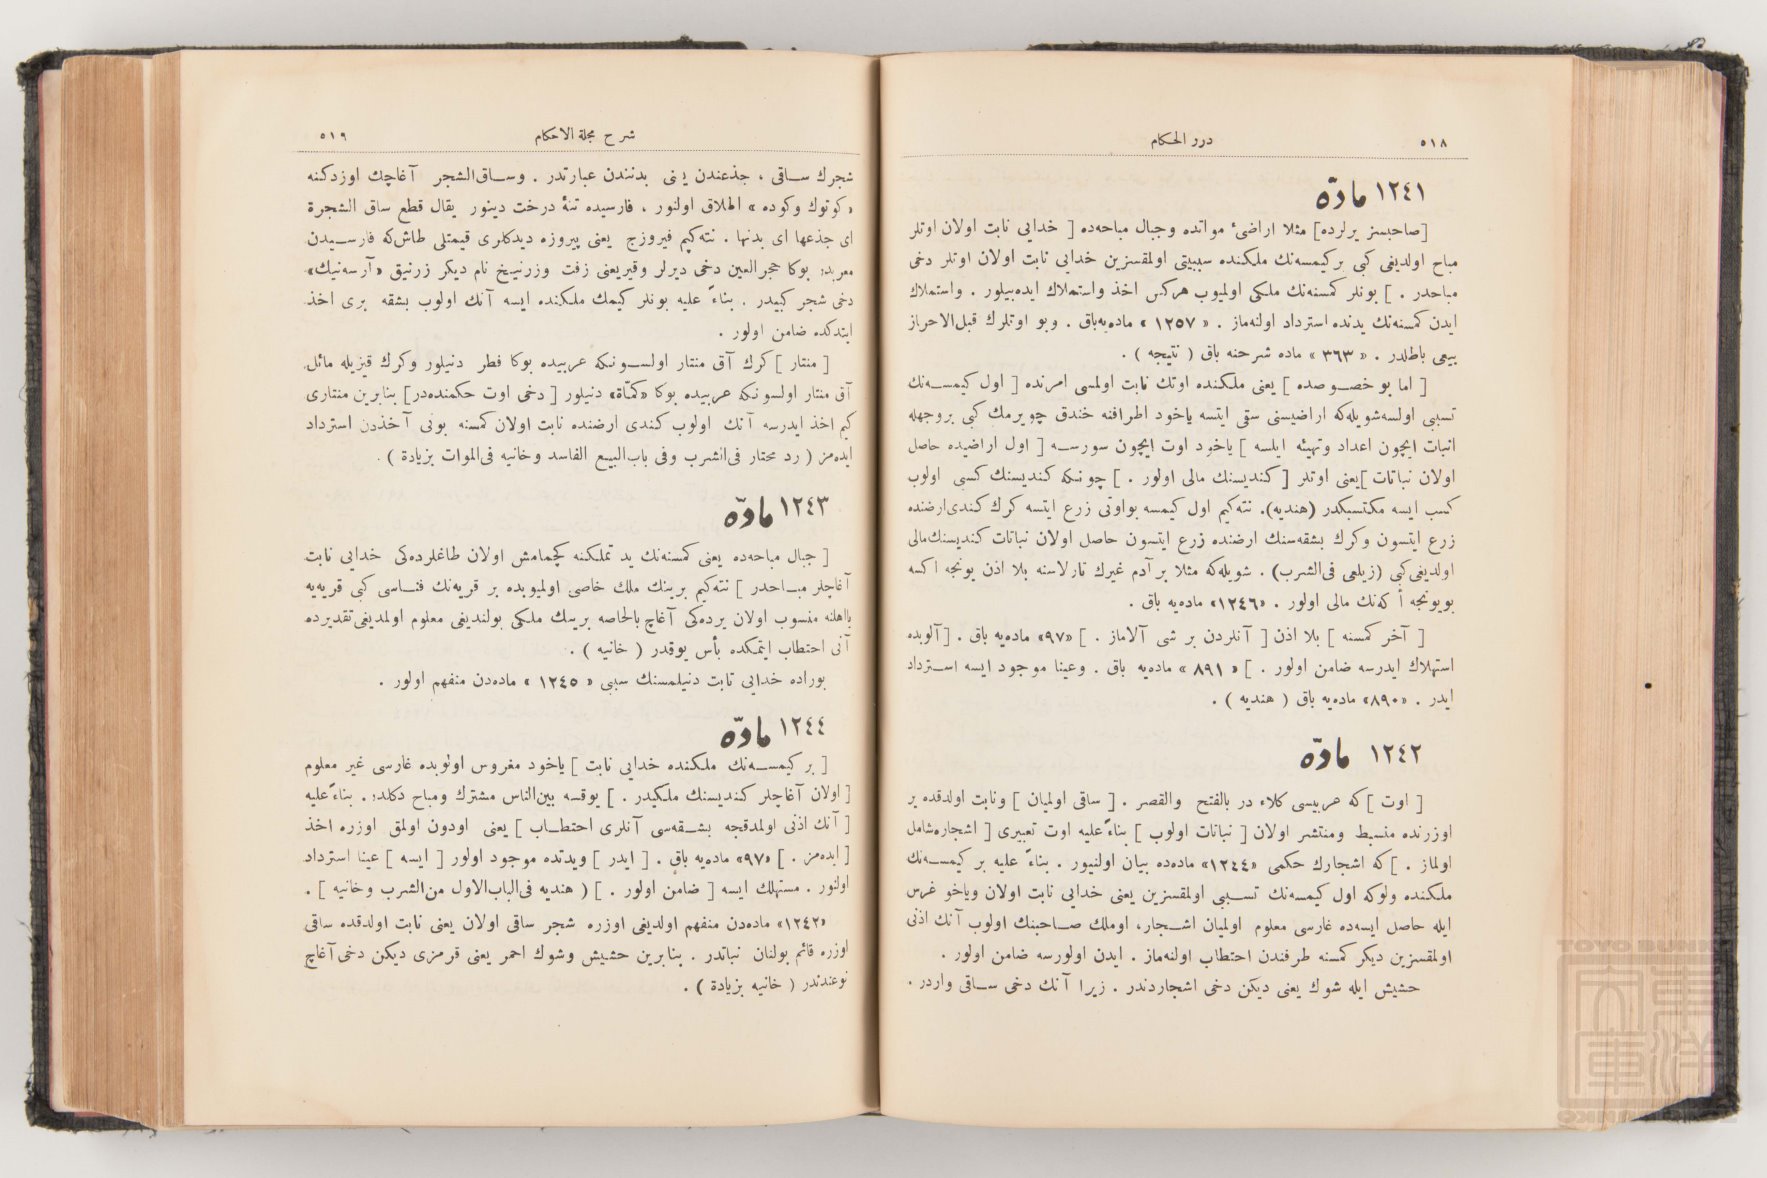 ٥١٨
درر الحكام
١٢٤١ مادّه
[صاحبسز يرلرده] مثلا اراضیٔ مواتده وجبال مباحه‌ده [ خدايی نابت اولان اوتلر
مباح اولديغی كبی بركيمسه‌نك ملكنده سببيتی اولمقسزين خدايی نابت اولان اوتلر دخی
مباحدر . ] بونلر كمسنه‌نك ملكی اولميوب هركس اخذ واستملاك ايده‌بيلور . واستملاك
ايدن كمسنه‌نك يدنده استرداد اولنه‌ماز . « ١٢٥٧ » ماده‌يه‌باق . وبو اوتلرك قبل‌الاحراز
بيعی باطلدر . « ٣٦٣ » ماده شرحنه باق ( نتيجه ) .
[ اما بو خصوصده ] يعنی ملكنده اوتك نابت اولمسی امرنده [ اول كيمسه‌نك
تسببی اولسه‌شويله‌كه اراضيسنی سقی ايتسه ياخود اطرافنه خندق چويرمك كبی بروجهله
انبات ايچون اعداد وتهيئه ايلسه ] ياخود اوت ايچون سورسه [ اول اراضيده حاصل
اولان نباتات ]يعنی اوتلر [ كنديسنك مالی اولور . ] چونكه كنديسنك كسبی اولوب
كسب ايسه مكتسبكدر (هنديه). نته‌كيم اول كيمسه بواوتی زرع ايتسه كرك كندی‌ارضنده
زرع ايتسون وكرك بشقه‌سنك ارضنده زرع ايتسون حاصل اولان نباتات كنديسنك‌مالی
اولديغی‌كبی (زيلعی فی‌الشرب) . شويله‌كه مثلا بر آدم غيرك تارلاسنه بلا اذن يونجه اكسه
بويونجه أ كه‌نك مالی اولور . «١٢٤٦» ماده‌يه باق .
[ آخر كمسنه ] بلا اذن [ آنلردن بر شی آلاماز . ] «٩٧» ماده‌يه باق . [آلوبده
استهلاك ايدرسه ضامن اولور . ] « ٨٩١ » ماده‌يه باق . وعينا موجود ايسه استرداد
ايدر . «٨٩٠» ماده‌يه باق ( هنديه ) .
١٢٤٢ مادّه
[ اوت ] كه عربيسی كلاء در بالفتح والقصر . [ ساقی اولميان ] ونابت اولدقده ير
اوزرنده منبسط ومنتشر اولان [ نباتات اولوب ] بناءً عليه اوت تعبيری [ اشجاره‌شامل
اولماز . ] كه اشجارك حكمی «١٢٤٤» ماده‌ده بيان اولنيور . بناءً عليه بر كيمسه‌نك
ملكنده ولوكه اول كيمسه‌نك تسببی اولمقسزين يعنی خدايی نابت اولان وياخو غرس
ايله حاصل ايسه‌ده غارسی معلوم اولميان اشجار، اوملك صاحبنك اولوب آنك اذنی
اولمقسزين ديكر كمسنه طرفندن احتطاب اولنه‌ماز . ايدن اولورسه ضامن اولور .
حشيش ايله شوك يعنی ديكن دخی اشجاردندر . زيرا آنك دخی ساقی واردر .
شرح مجلة الاحكام
٥١٩
شجرك ساقی ، جذعندن يعنی بدنندن عبارتدر . وساق‌الشجر آغاچك اوزدكنه
«كوتوك وكوده» اطلاق اولنور ، فارسيده تنهٔ درخت دينور يقال قطع ساق الشجرة
ای جذعها ای بدنها . نته‌كيم فيروزج يعنی پيروزه ديدكلری قيمتلی طاش‌كه فارسيدن
معربدر بوكا حجرالعين دخی ديرلر وقيريعنی زفت وزرنيخ نام ديكر زرنيق «آرسه‌نيك»
دخی شجر كبيدر . بناءً عليه بونلر كيمك ملكنده ايسه آنك اولوب بشقه بری اخذ
ايتدكده ضامن اولور .
[ منتار ] كرك آق منتار اولسونكه عربيده بوكا فطر دنيلور وكرك قيزيله مائل
آق منتار اولسونكه عربيده بوكا «كمّأة» دنيلور [ دخی اوت حكمنده‌در] بنابرين منتاری
كيم اخذ ايدرسه آنك اولوب كندی ارضنده نابت اولان كمسنه بونی آخذدن استرداد
ايده‌مز ( رد محتار فی‌الشرب وفی باب‌البيع الفاسد وخانيه فی‌الموات بزيادة ) .
١٢٤٣ مادّه
[ جبال مباحه‌ده يعنی كمسنه‌نك يد تملكنه كچمامش اولان طاغلرده‌كی خدايی نابت
آغاچلر مباحدر ] نته‌كيم برينك ملك خاصی اولميوبده بر قريه‌نك فناسی كبی قريه‌يه
يااهلنه منسوب اولان يرده‌كی آغاچ بالخاصه برينك ملكی بولنديغی معلوم اولمديغی‌تقديرده
آنی احتطاب ايتمكده بأس يوقدر ( خانيه ) .
بوراده خدايی نابت دنيلمسنك سببی « ١٢٤٥ » ماده‌دن منفهم اولور .
١٢٤٤ مادّه
[ بر كيمسه‌نك ملكنده خدايی نابت ] ياخود مغروس اولوبده غارسی غير معلوم
[ اولان آغاچلر كنديسنك ملكيدر . ] يوقسه بين‌الناس مشترك ومباح دكلدر . بناءً‌عليه
[ آنك اذنی اولمدقجه بشقه‌سی آنلری احتطاب ] يعنی اودون اولمق اوزره اخذ
[ ايده‌مز . ] «٩٧» ماده‌يه باق . [ ايدر ] ويدنده موجود اولور [ ايسه ] عينا استرداد
اولنور . مستهلك ايسه [ ضامن اولور . ] ( هنديه فی‌الباب‌الاول من‌الشرب وخانيه ) .
«١٢٤٢» ماده‌دن منفهم اولديغی اوزره شجر ساقی اولان يعنی نابت اولدقده ساقی
اوزره قائم بولنان نباتدر . بنابرين حشيش وشوك احمر يعنی قرمزی ديكن دخی آغاچ
نوعندندر ( خانيه بزيادة ) .
TOYO BUNKO
東洋文庫